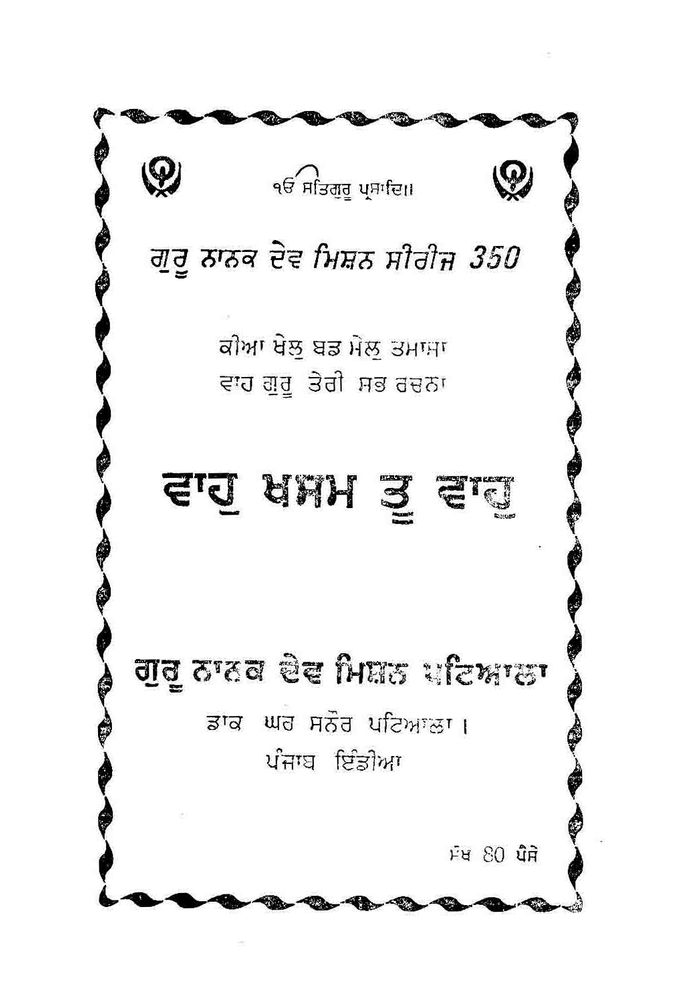 ੴ ਸਤਿਗੁਰੂ ਪ੍ਰਸਾਦਿ॥
ਗੁਰੂ ਨਾਨਕ ਦੇਵ ਮਿਸ਼ਨ ਸੀਰੀਜ 350
ਕੀਆ ਖੇਲੁ ਬਡ ਮੇਲੁ ਤਮਾਸਾ
ਵਾਹ ਗੁਰੂ ਤੇਰੀ ਸਭ ਰਚਨਾ
ਵਾਹੁ ਖਸਮ ਤੂ ਵਾਹੁ
ਗੁਰੂ ਨਾਨਕ ਦੇਵ ਮਿਸ਼ਨ ਪਟਿਆਲਾ
ਡਾਕ ਘਰ ਸਨੌਰ ਪਟਿਆਲਾ।
ਪੰਜਾਬ ਇੰਡੀਆ
80 ਪੈਸੇ